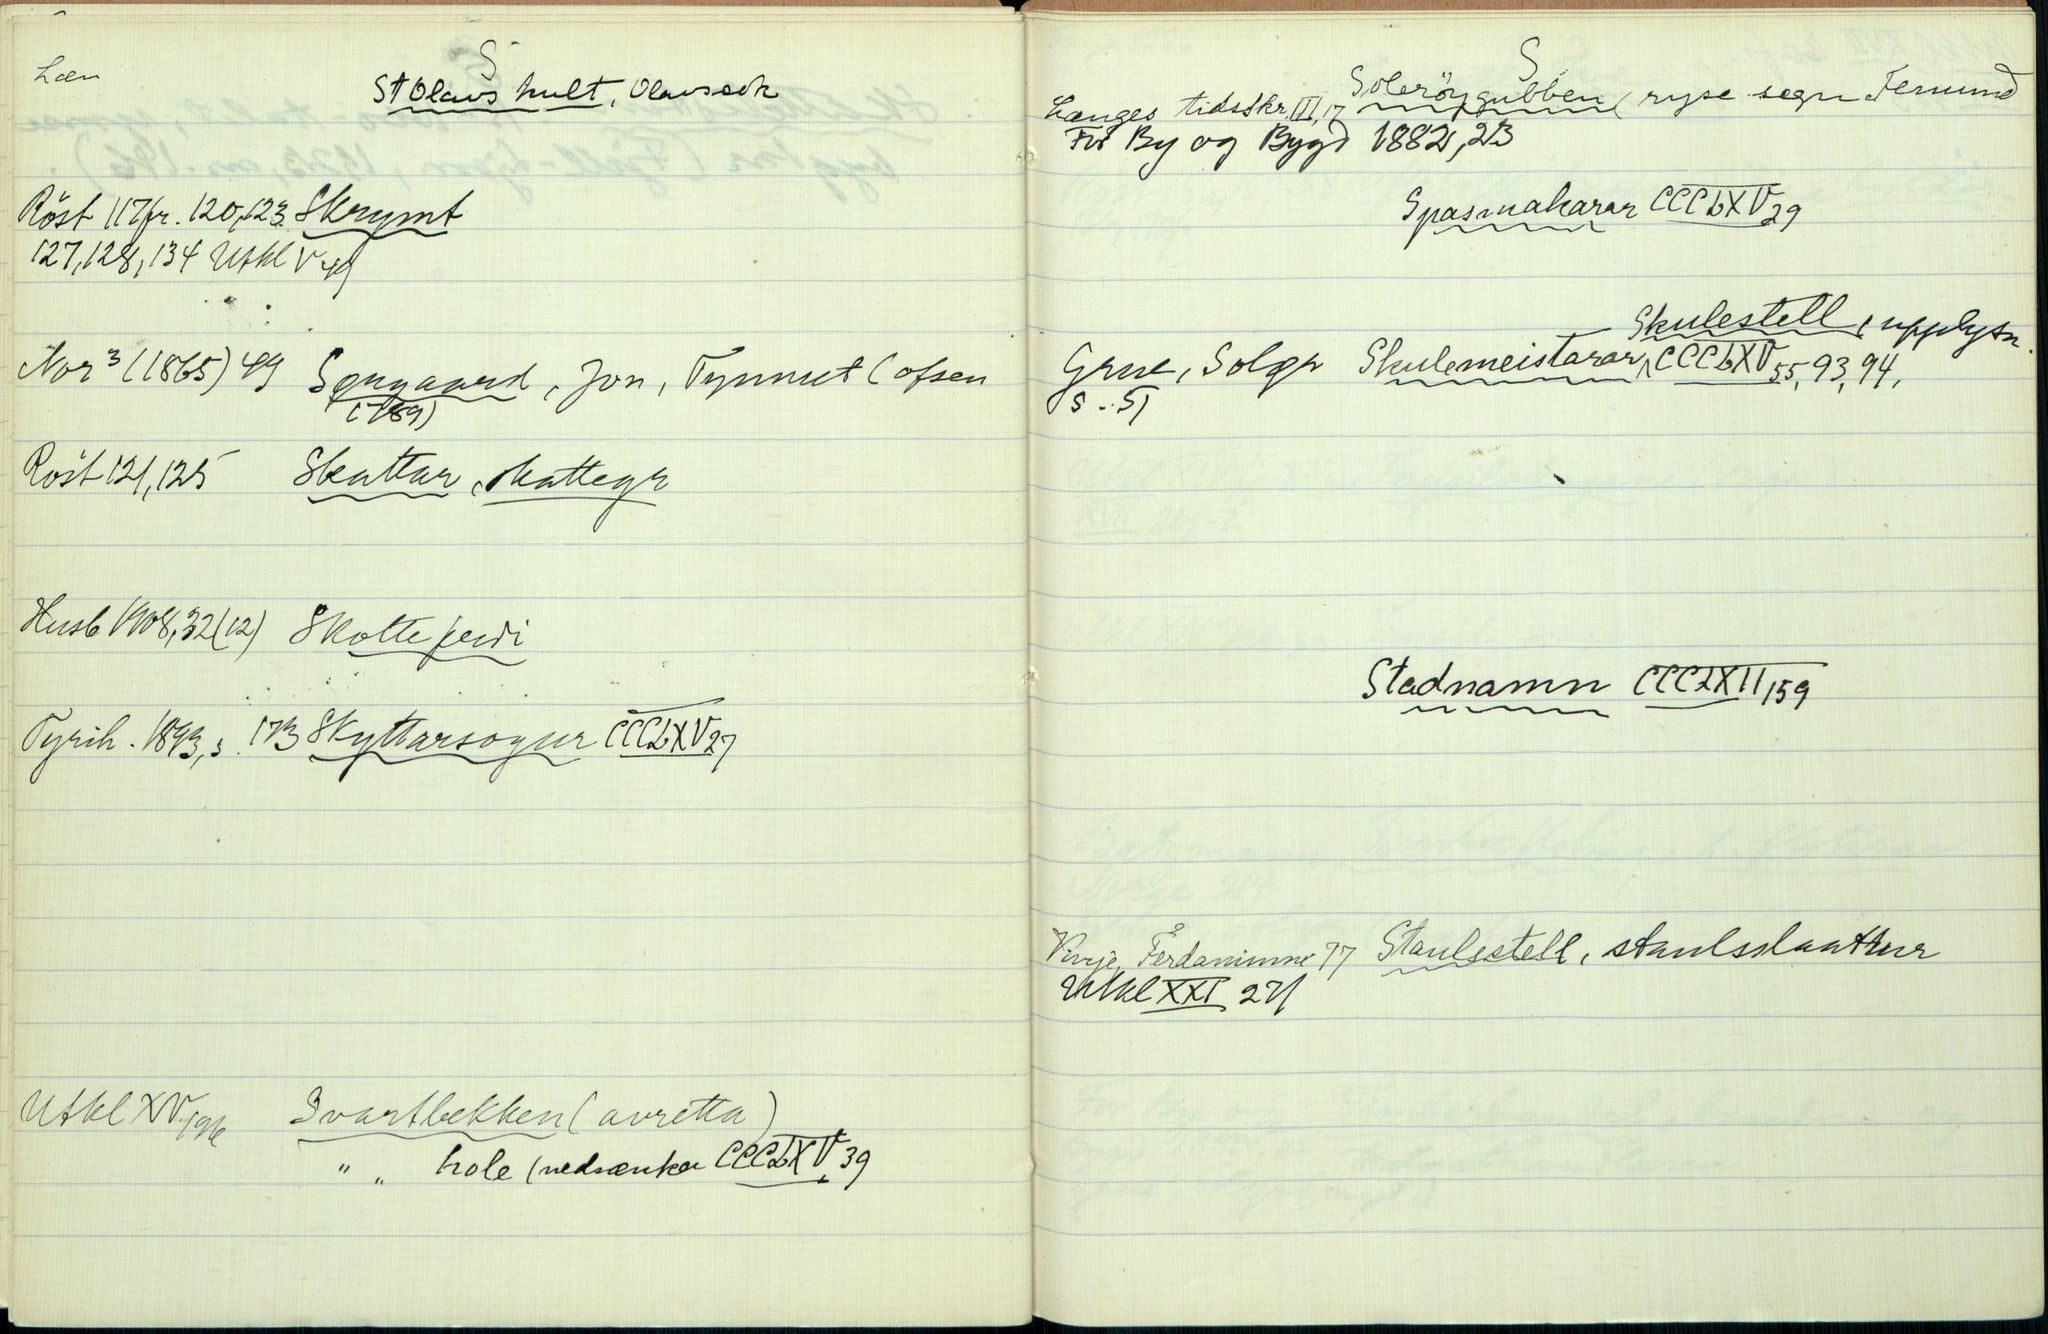 S
Læn
St Olavs kult, Olavssok
Röst 117fr. 120,123 Skrymt
127,128,134 Utkl V 49
Nor³ (1865) 49 Søngaard, Jon, Tynnset (ofsen
(1789)
Röst 121,125 Skattar, skattegr
Husb 1908,32(12) Skotteferdi
Tyrih. 1893, s. 173 Skyttarsogur CCCLXV 27
Utkl XV 196 Svartbekken (avretta)
" " hole (nedsenka CCCLXV, 39
S
Solerøygubben (ryse segn Femund
Langes tidsskr. III, 17
For By og Bygd 1882, 23
Spasmakarar CCCLXV 29
Skulestell, upplysn.
Grue, Solør Skulemeistarar, CCCLXV 55, 93, 94,
S. 51
Stadnamn CCCLXII 159
Vinje, Ferdaminne 77 Staulsstell, staulsslaatter
Utkl XXI 271